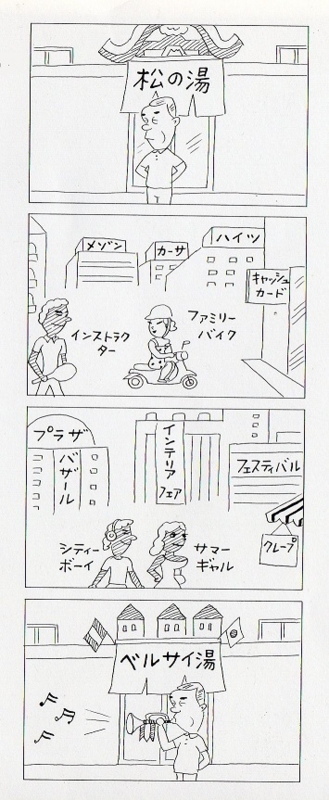 松の湯
メゾン
カーサ
ハイツ
キャッシュ
カード
インストラク
ター
ファミリー
バイク
プラザ
バザール
インテリア
フェア
フェスティバル
クレープ
シティー
ボーイ
サマー
ギャル
ベルサイ湯